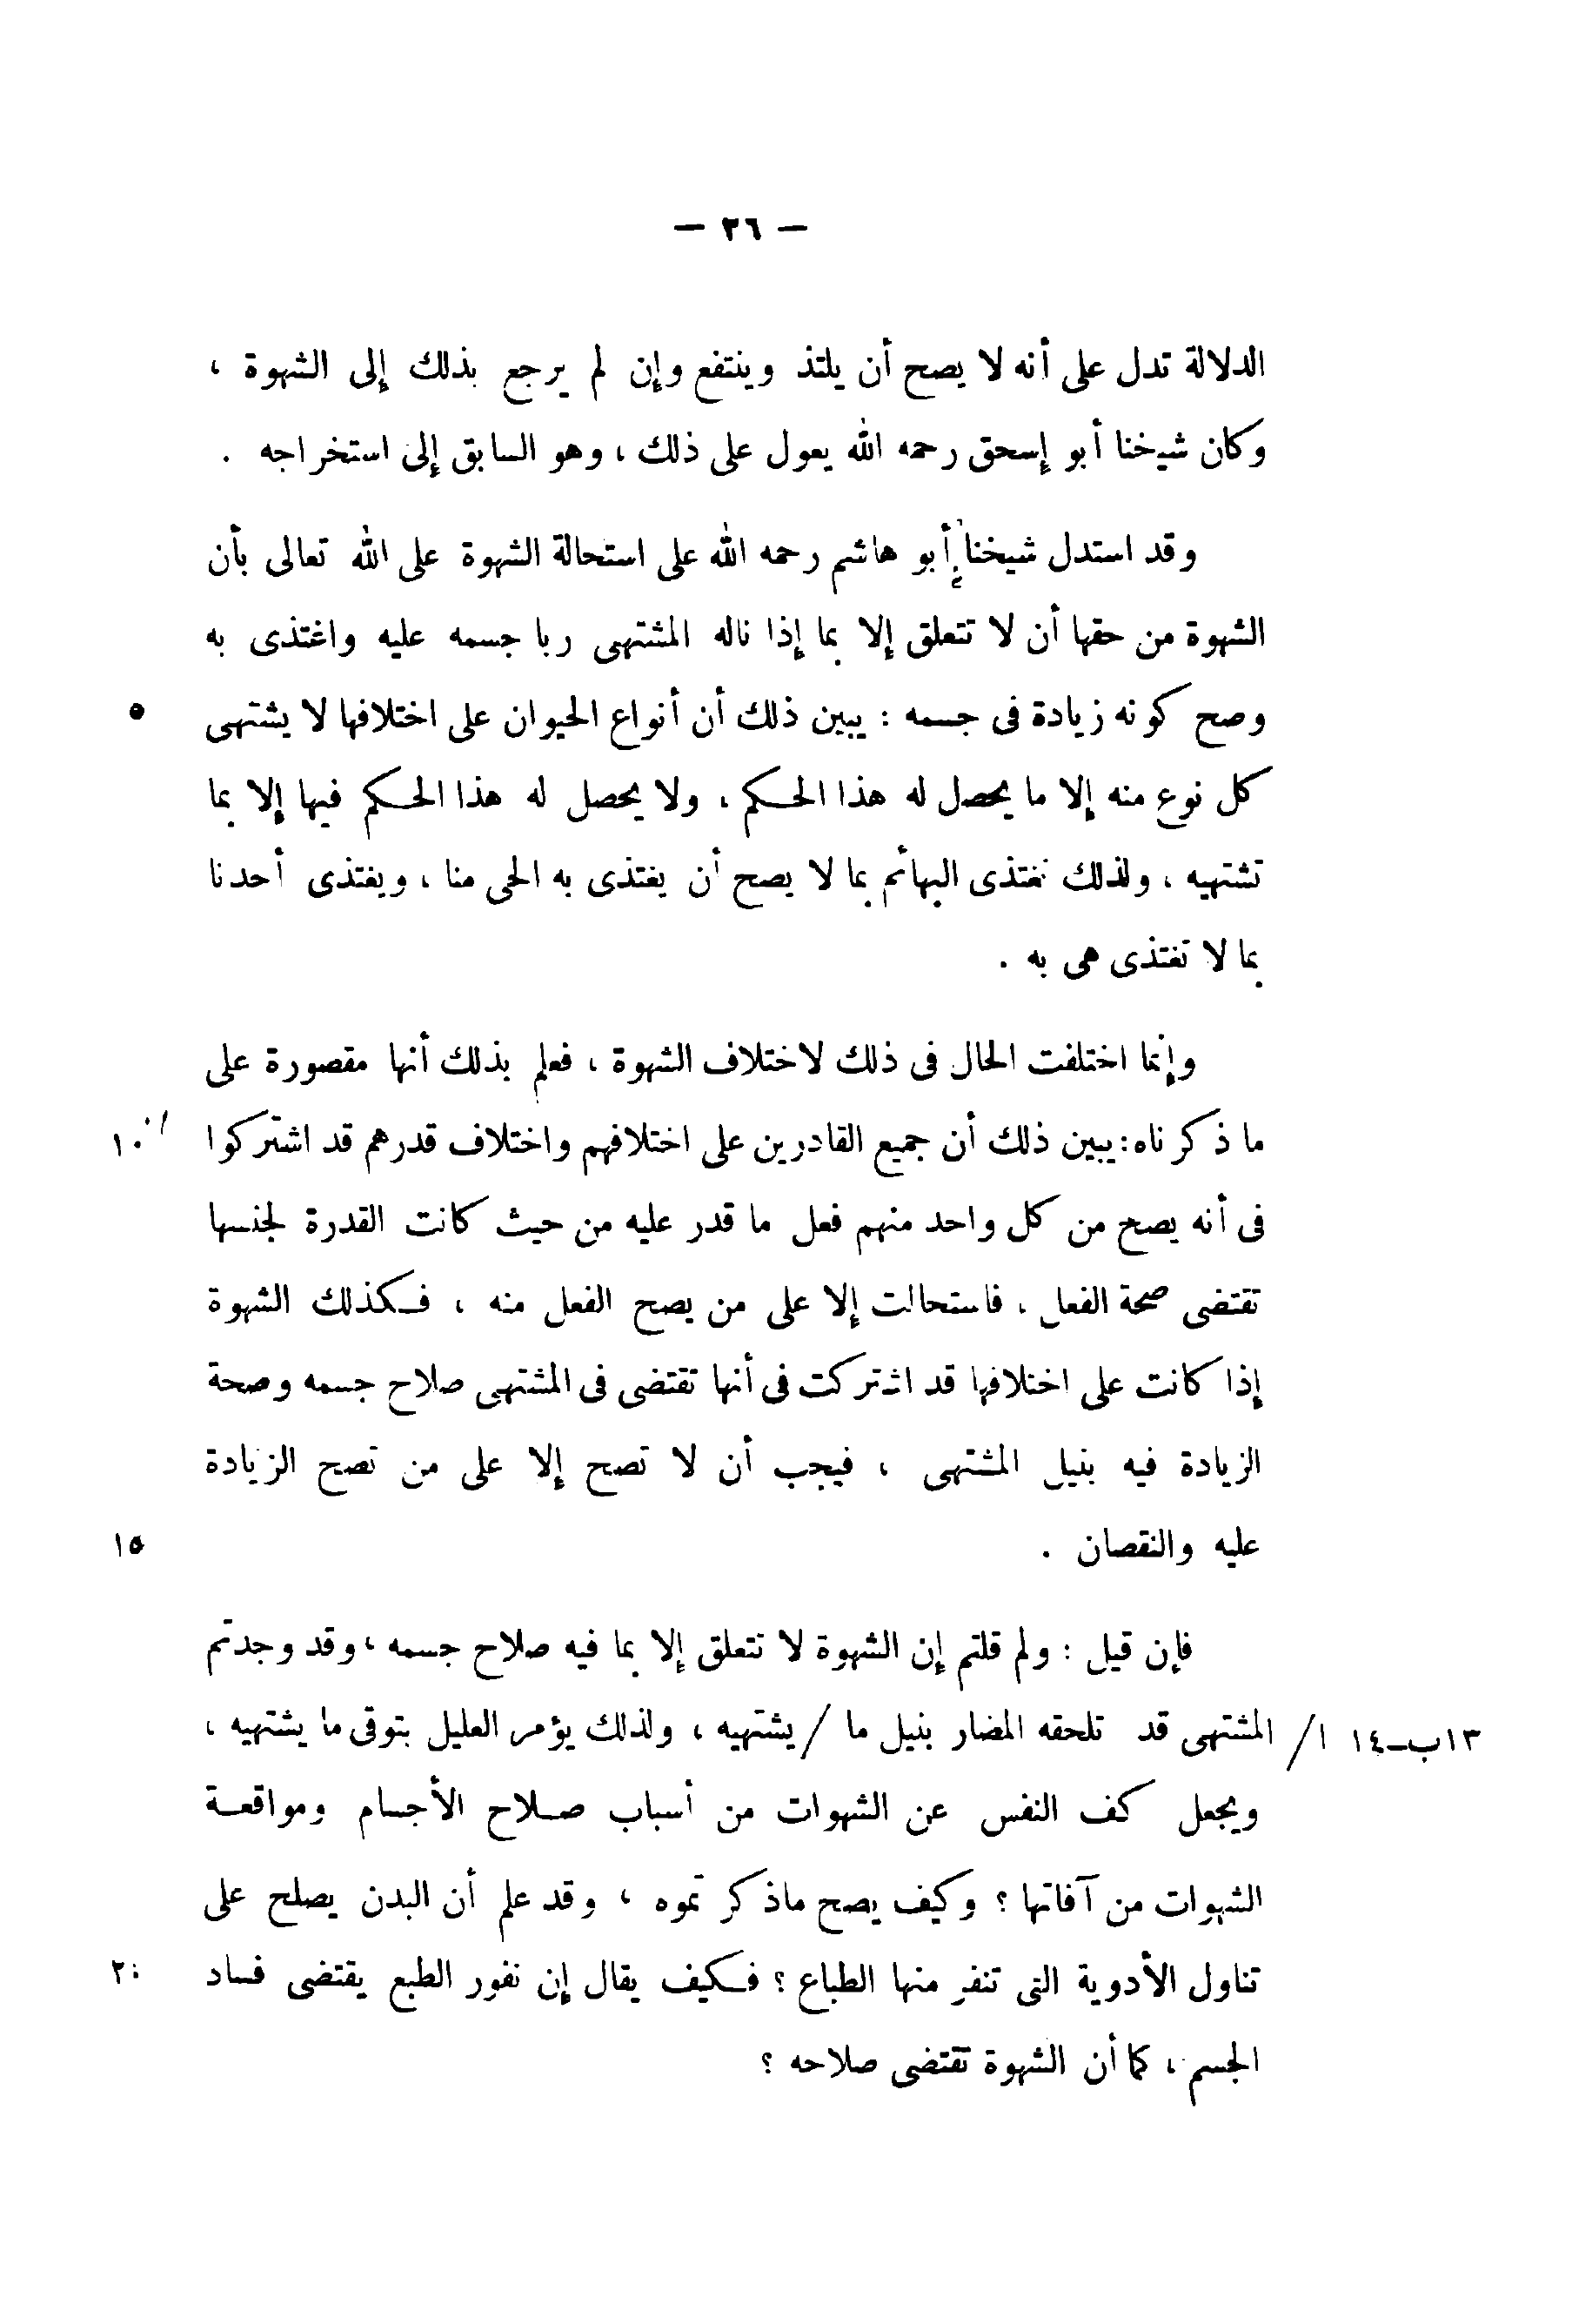 — ٢٦ —
الدلالة تدل على أنه لا يصح أن يلتذ وينتفع وإن لم يرجع بذلك إلى الشهوة ،
وكان شيخنا أبو إسحق رحمه الله يعول على ذلك ، وهو السابق إلى استخراجه .
وقد استدل شيخنا أبو هاشم رحمه الله على استحالة الشهوة على الله تعالى بأن
الشهوة من حقها أن لا تتعلق إلا بما إذا ناله المشتهى ربا جسمه عليه واغتذى به
وصح كونه زيادة فى جسمه : يبين ذلك أن أنواع الحيوان على اختلافها لا يشتهى ٥
كل نوع منه إلا ما يحصل له هذا الحكم ، ولا يحصل له هذا الحكم فيها إلا بما
تشتهيه ، ولذلك تغتذى البهائم بما لا يصح أن يغتذى به الحى منا ، ويغتذى أحدنا
بما لا تغتذى هى به .
وإنما اختلفت الحال فى ذلك لاختلاف الشهوة ، فعلم بذلك أنها مقصورة على
ما ذكرناه : يبين ذلك أن جميع القادرين على اختلافهم واختلاف قدرهم قد اشتركوا ١٠
فى أنه يصح من كل واحد منهم فعل ما قدر عليه من حيث كانت القدرة لجنسها
تقتضى صحة الفعل ، فاستحالت إلا على من يصح الفعل منه ، فكذلك الشهوة
إذا كانت على اختلافها قد اشتركت فى أنها تقتضى فى المشتهى صلاح جسمه وصحة
الزيادة فيه بنيل المشتهى ، فيجب أن لا تصح إلا على من تصح الزيادة
عليه والنقصان . ١٥
فإن قيل : ولم قلتم إن الشهوة لا تتعلق إلا بما فيه صلاح جسمه ، وقد وجدتم
١٣ب-١٤ ا/ المشتهى قد تلحقه المضار بنيل ما / يشتهيه ، ولذلك يؤمر العليل بتوقى ما يشتهيه ،
ويجعل كف النفس عن الشهوات من أسباب صلاح الأجسام ومواقعة
الشهوات من آفاتها ؟ وكيف يصح ماذكرتموه ، وقد علم أن البدن يصلح على
تناول الأدوية التى تنفر منها الطباع ؟ فكيف يقال إن نفور الطبع يقتضى فساد ٢٠
الجسم ، كما أن الشهوة تقتضى صلاحه ؟